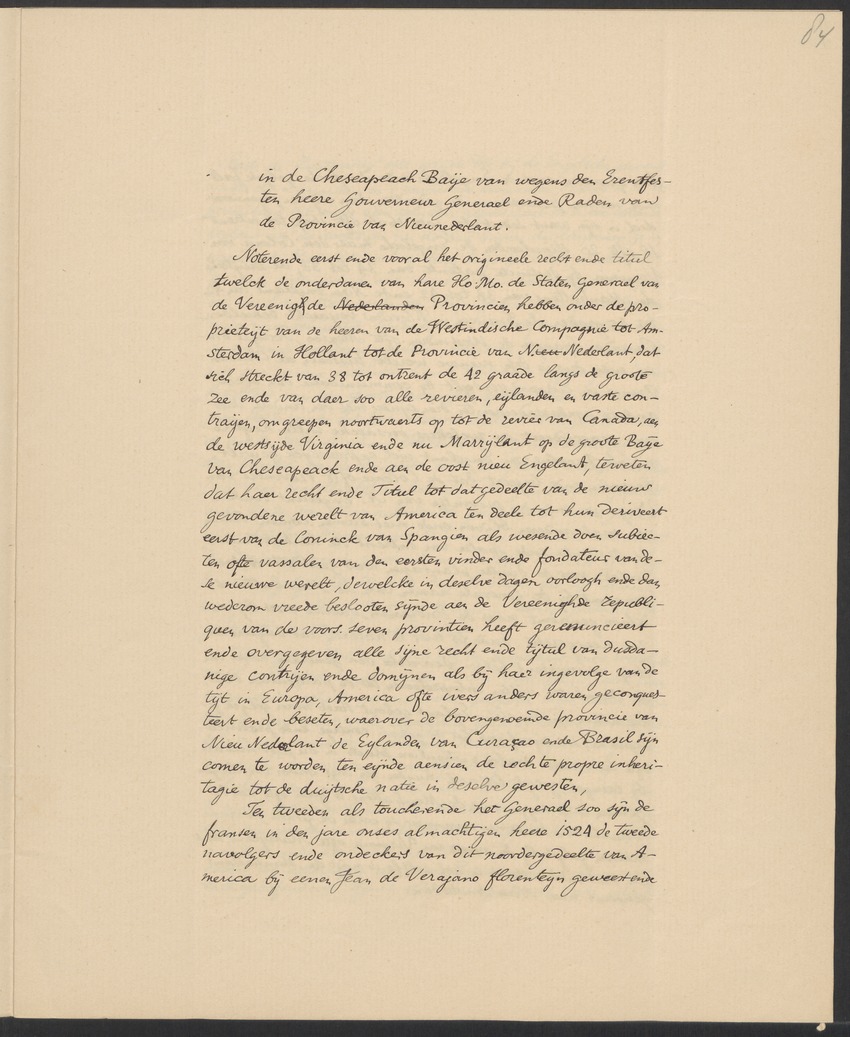 84
in de Cheseapeach Baije van wegens den Erentfes-
ten heere Gouverneur Generael ende Raden van
de Provincie van Nieunederlant.
Noterende eerst ende vooral het origineele recht ende titul
twelck de onderdanen van hare Ho: Mo. de Staten Generael van
de Vereenighde Nederlanden Provincien hebben onder de pro-
prieteijt van de heeren van de Westindische Compagnie tot Am-
sterdam in Hollant tot de Provincie van Nieu Nederlant, dat
sich streckt van 38 tot ontrent de 42 graade langs de groote
Zee ende van daer soo alle revieren, eijlanden en vaste con-
traijen, omgreepen noortwaerts op tot de revier van Canada, aen
de westsijde Virginia ende nu Marrijlant op de groote Baije
van Cheseapeack ende aen de oost nieu Engelant, teweten
dat haer recht ende Titul tot dat gedeelte van de nieuw
gevondene werelt van America ten deele tot hun deriveert
eerst van de Coninck van Spangien als wesende doen subiec-
ten ofte vassalen van den eersten vinder ende fondateur van de-
se nieuwe werelt, dewelcke in deselve dagen oorloogh ende dan
wederom vreede beslooten sijnde aen de Vereenighde republi-
quen van de voors. seven provintien heeft gerenuncieert
ende overgegeven alle sijne recht ende tijtul van dusda-
nige contrijen ende domijnen als bij haer ingevolge van de
tijt in Europa, America ofte ivers anders waren geconques-
teert ende beseten, waerover de bovengenoemde provincie van
Nieu Nederlant de Eylanden van Curaçao ende Brasil sijn
comen te worden ten eijnde aensien de rechte propre inheri-
tagie tot de duijtsche natie in deselve gewesten,
Ten tweeden als toucherende het Generael soo sijn de
fransen in den jare onses almachtigen heere 1524 de tweede
navolgers ende ondeckers van dit noordergedeelte van A-
merica bij eenen Jean de Verajano florenteyn geweest ende